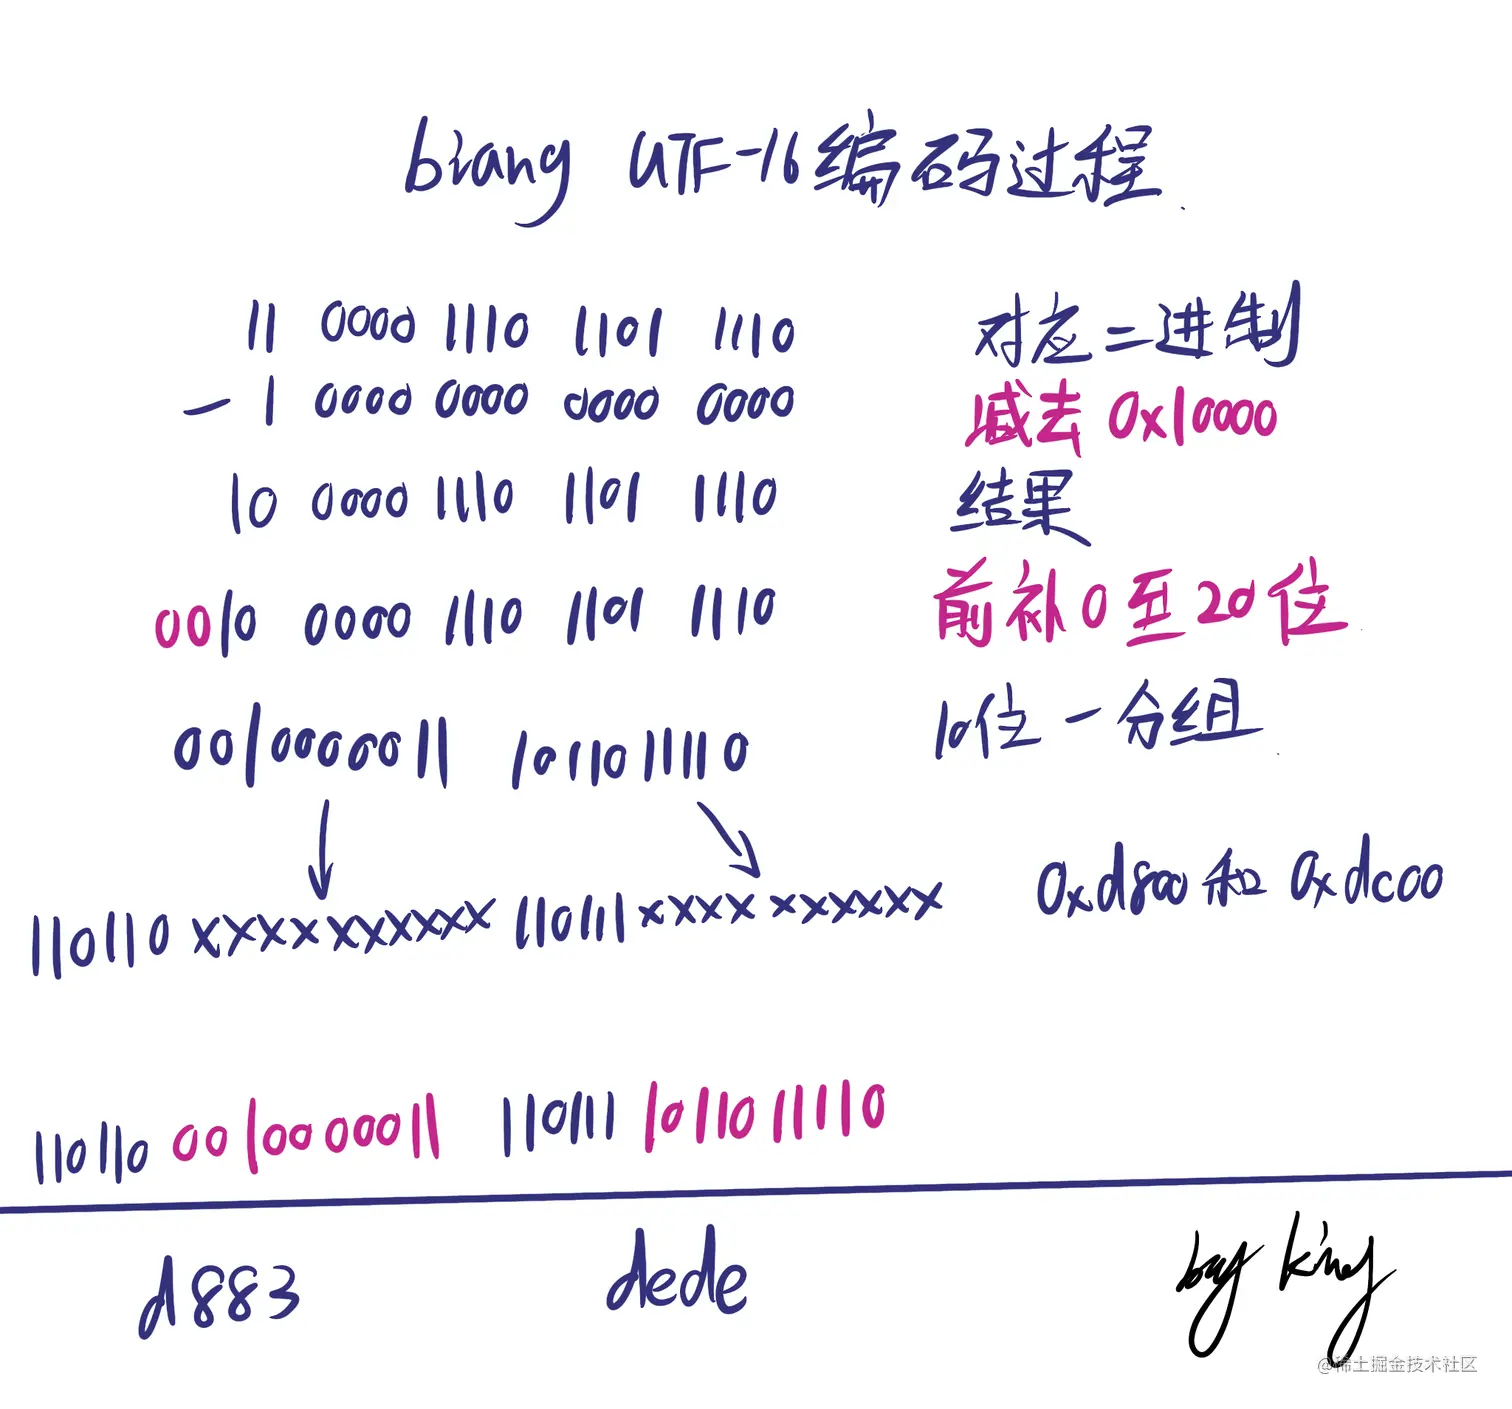 biang UTF-16编码过程
11 0000 1110 1101 1110 对应二进制
- 1 0000 0000 0000 0000 减去 0x10000
10 0000 1110 1101 1110 结果
0010 0000 1110 1101 1110 前补0至20位
0010000011 1011011110 10位一分组
110110 xxxx xxxxxx 110111 xxxx xxxxxx 0xd800 和 0xdc00
110110 0010000011 110111 1011011110
d883 dede
by king
@稀土掘金技术社区